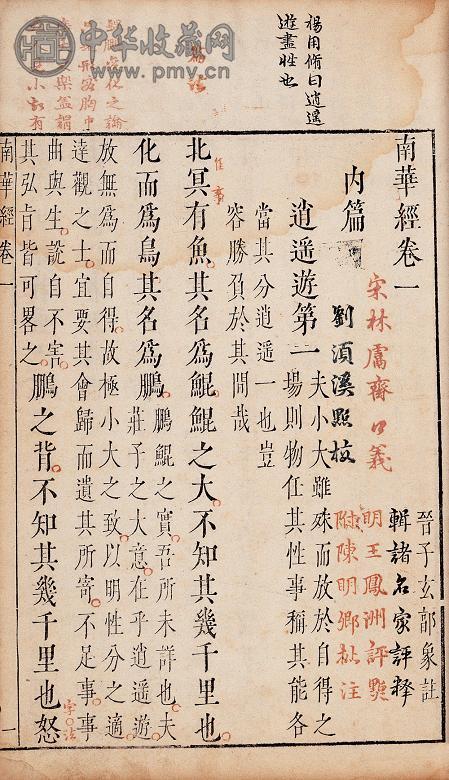 中华收藏网
www.pmv.cn
楊用脩曰逍遥
遊盡性也
南華經卷一
晉子玄郭象註
輯諸名家評釋
宋林鬳齋口義
明王鳳洲評點
附陳明卿批注
劉須溪點校
內篇
逍遥遊第一
夫小大雖殊而放於自得之
場則物任其性事稱其能各
當其分逍遥一也豈
容勝負於其間哉
北冥有魚其名為鯤鯤之大不知其幾千里也
化而為鳥其名為鵬
鵬鯤之實吾所未詳也夫
莊子之大意在乎逍遥遊
放無為而自得故極小大之致以明性分之適
達觀之士宜要其會歸而遺其所寄不足事事
曲與生說自不害
其弘旨皆可畧之
鵬之背不知其幾千里也怒
字法
南華經卷一
一